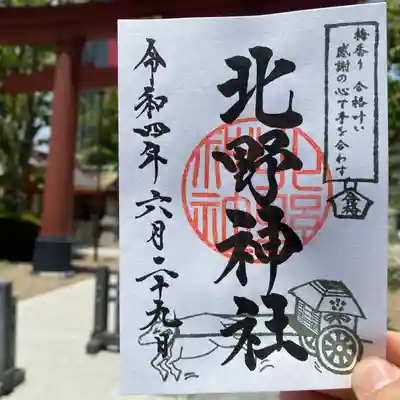 梅香り 合格叶い
感謝の心で手を合わす
合格
北野神社
令和四年六月二十九日